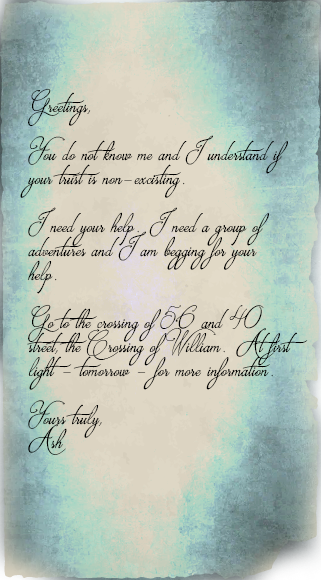 Greetings,
You do not know me and I understand if
your trust is non-excisting.
I need your help. I need a group of
adventures and I am begging for your
help.
Go to the crossing of 56 and 40
street, the Crossing of William. At first
light - tomorrow - for more information.
Yours truly,
Ash